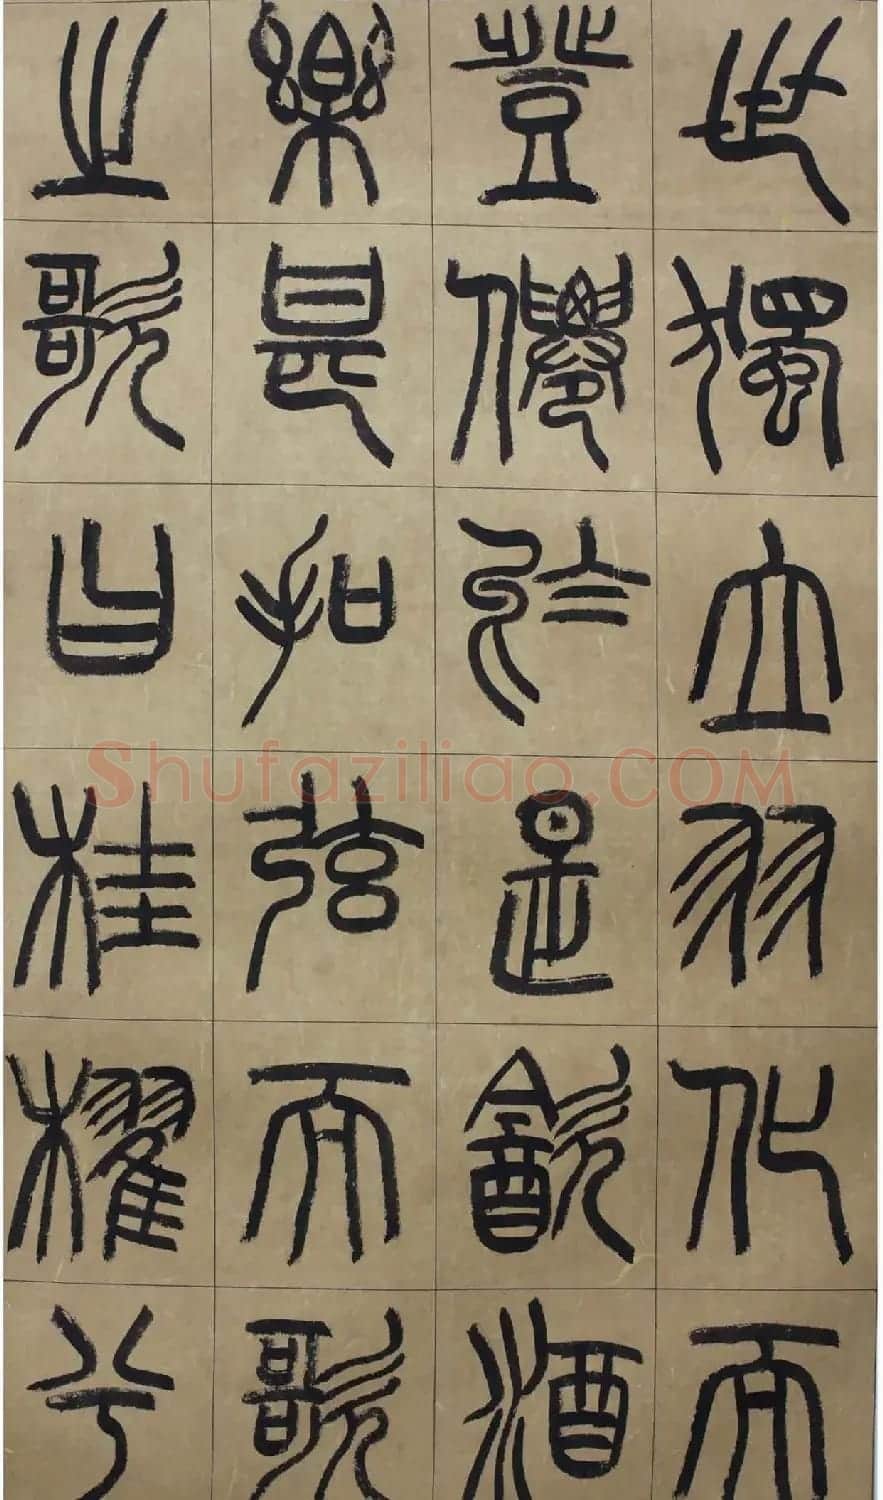 世獨立羽化而
登僊於是飲酒
樂甚扣弦而歌
之歌曰桂櫂兮
Shufaziliao.COM